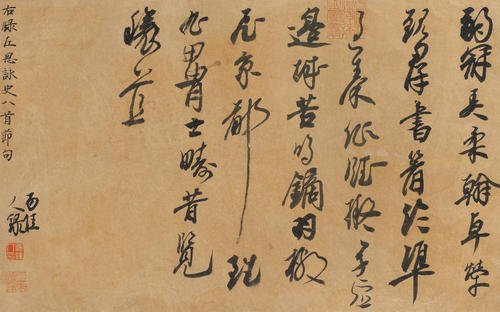 弱冠弄柔翰卓犖
觀群書著論準
過秦作賦擬子虛
邊城苦鳴鏑羽檄
飛京都雖
非甲冑士疇昔覽
穰苴
右錄左思詠史八首節句
人錄